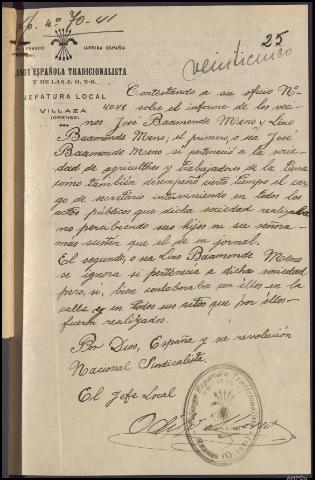 Exp. nº 70-41
25
veinticinco
FRANCO ¡ARRIBA ESPAÑA!
FALANGE ESPAÑOLA TRADICIONALISTA
Y DE LAS J. O. N-S.
JEFATURA LOCAL
VILLAZA
(ORENSE)
Contestando a su oficio Nº
4048 sobre el informe de los veci-
nos José Baamonde Meno y Lino
Baamonde Meno; el primero o sea José
Baamonde Meno si perteneció a la socie-
dad de agricultores y trabajadores de la tierra
como también desempeñó cierto tiempo el car-
go de secretario interviniendo en todos los
actos públicos que dicha sociedad realizaba
no percibiendo sus hijos ni su señora
más sostén que el de su jornal.
El segundo, o sea Lino Baamonde Meno
se ignora si pertenecia a dicha sociedad
pero, si, bien contaboraba con ellos en la
calle y en todos sus actos que por ellos
fueron realizados.
Por Dios, España y su revolución
Nacional Sindicalista.
El Jefe Local
Española Tradicionalista